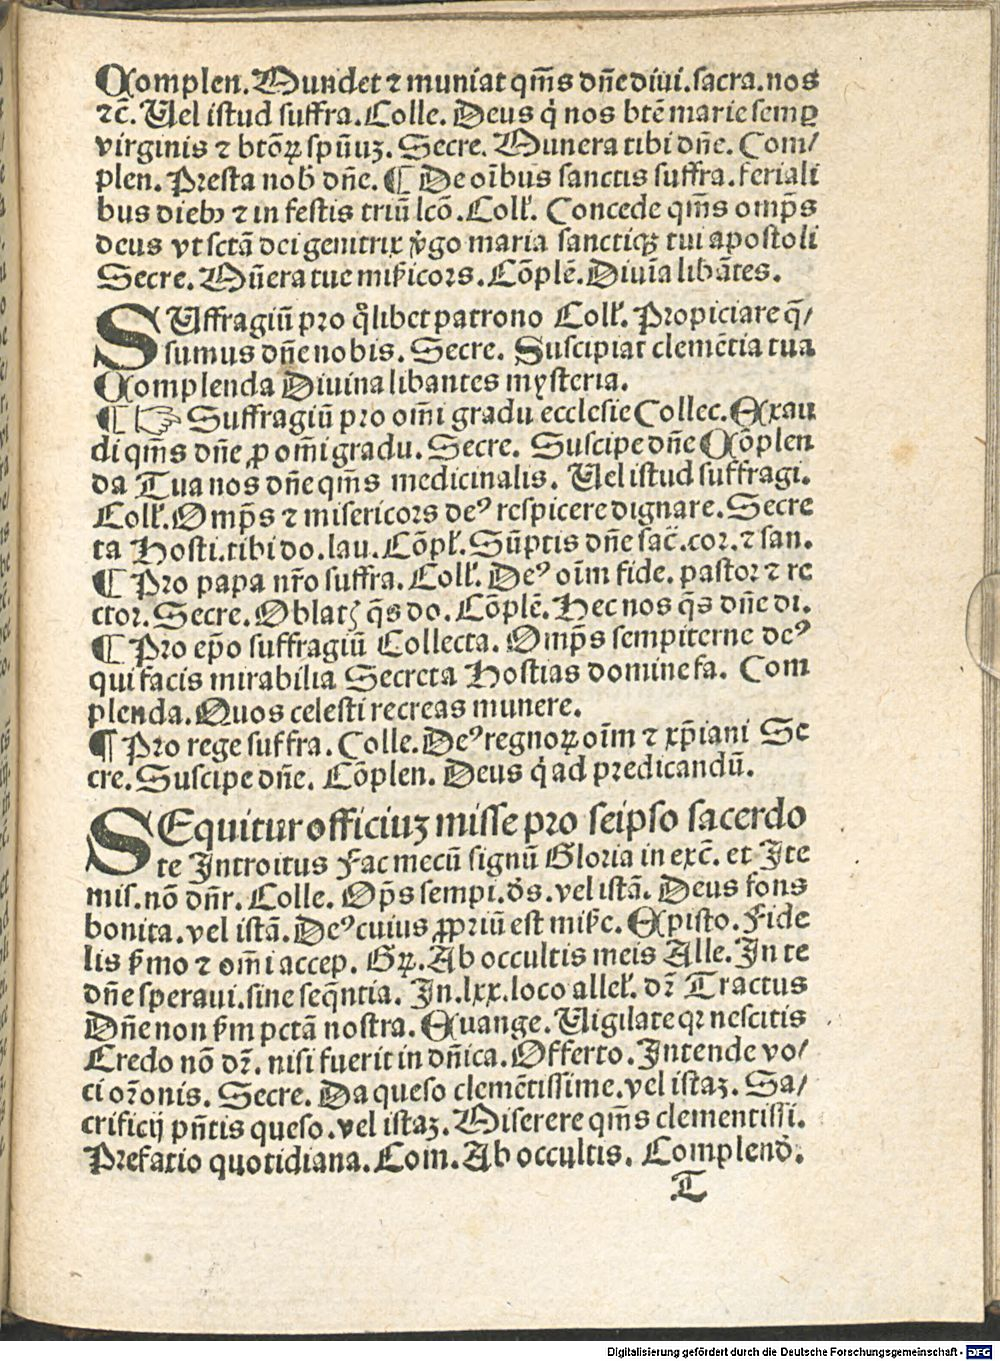 Complen. Mundet ⁊ muniat qm̄s dn̄e diui. sacra. nos
⁊c̄. Uel istud suffra. Colle. Deus q̇ nos btē marie semꝑ
virginis ⁊ btōꝝ spn̄uꝫ. Secre. Munera tibi dn̄e. Com/
plen. Presta nob̄ dn̄e. ¶ De oībus sanctis suffra. feriali
bus dieb⁹ ⁊ in festis triū lcō. Coll̄. Concede qm̄s omp̄s
deus vt sctā dei genitrix v̇go maria sanctiqꝫ tui apostoli
Secre. Mūera tue mīs̄icors. Cōplē. Diuīa libātes.
SUffragiū pro qͦlibet patrono Coll̄. Propiciare q̄/
sumus dn̄e nobis. Secre. Suscipiat clemētia tua
Complenda Diuina libantes mysteria.
¶ ☞ Suffragiū pro om̄i gradu ecclesie Collec. Exau
di qm̄s dn̄e ꝓ om̄i gradu. Secre. Suscipe dn̄e Cōplen
da Tua nos dn̄e qm̄s medicinalis. Uel istud suffragi.
Coll̄. Omp̄s ⁊ misericors de⁹ respicere dignare. Secre
ta Hosti. tibi do. lau. Cōpl̄. Sūptis dn̄e sac̄. cor. ⁊ san.
¶ Pro papa nr̄o suffra. Coll̄. De⁹ oīm fide. pastor ⁊ re
ctor. Secre. Oblatꝭ q̄s do. Cōplē. Hec nos q̄s dn̄e di.
¶ Pro ep̄o suffragiū Collecta. Omp̄s sempiterne de⁹
qui facis mirabilia Secreta Hostias domine fa. Com
plenda. Quos celesti recreas munere.
¶ Pro rege suffra. Colle. De⁹ regnoꝝ oīm ⁊ xp̄iani Se
cre. Suscipe dn̄e. Cōplen. Deus q̇ ad predicandū.
SEquitur officiuꝫ misse pro seipso sacerdo
te Introitus Fac mecū signū Gloria in exc̄. et Ite
mis. nō dn̄r. Colle. Op̄s sempi. ds̄. vel istā. Deus fons
bonita. vel istā. De⁹ cuius ꝓpriū est mis̄c. Episto. Fide
lis s̄mo ⁊ om̄i accep. Gꝝ. Ab occultis meis Alle. In te
dn̄e speraui. sine seqn̄tia. In .lxx. loco allel̄. dr̄ Tractus
Dn̄e non s̄m pctā nostra. Euange. Uigilate qꝛ nescitis
Credo nō dr̄. nisi fuerit in dn̄ica. Offerto. Intende vo/
ci or̄onis. Secre. Da queso clemētissime. vel istaꝫ. Sa/
crificij pn̄tis queso. vel istaꝫ. Miserere qm̄s clementissi.
Prefatio quotidiana. Com. Ab occultis. Complend̄.
T
Digitalisierung gefördert durch die Deutsche Forschungsgemeinschaft - DFG